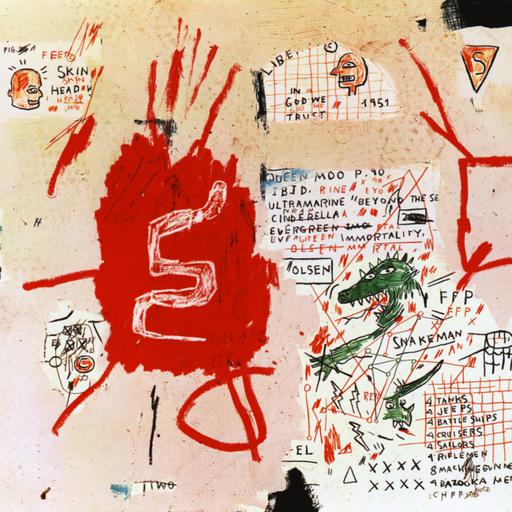 FEEC
SKIN
SKIN
HEAD
LIBE ©
IN
GOD WE
TRUST
1951
S
QUEEN MOO P. 90.
IBID.
ULTRAMARINE "BEYOND THE SE
CINDERELLA
EVERGREEN
EVERGREEN IMMORTALITY.
OLSEN
OLSEN
FFP
EFP
SNAKEMAN
AN
4 TANKS
4 JEEPS
4 BATTLESHIPS
4 CRUISERS
4 SAILORS
4 RIFLEMEN
8 MACHINEGUNNE
4 BAZOOKA MEN
EL
XXXX
XXXX
TWO